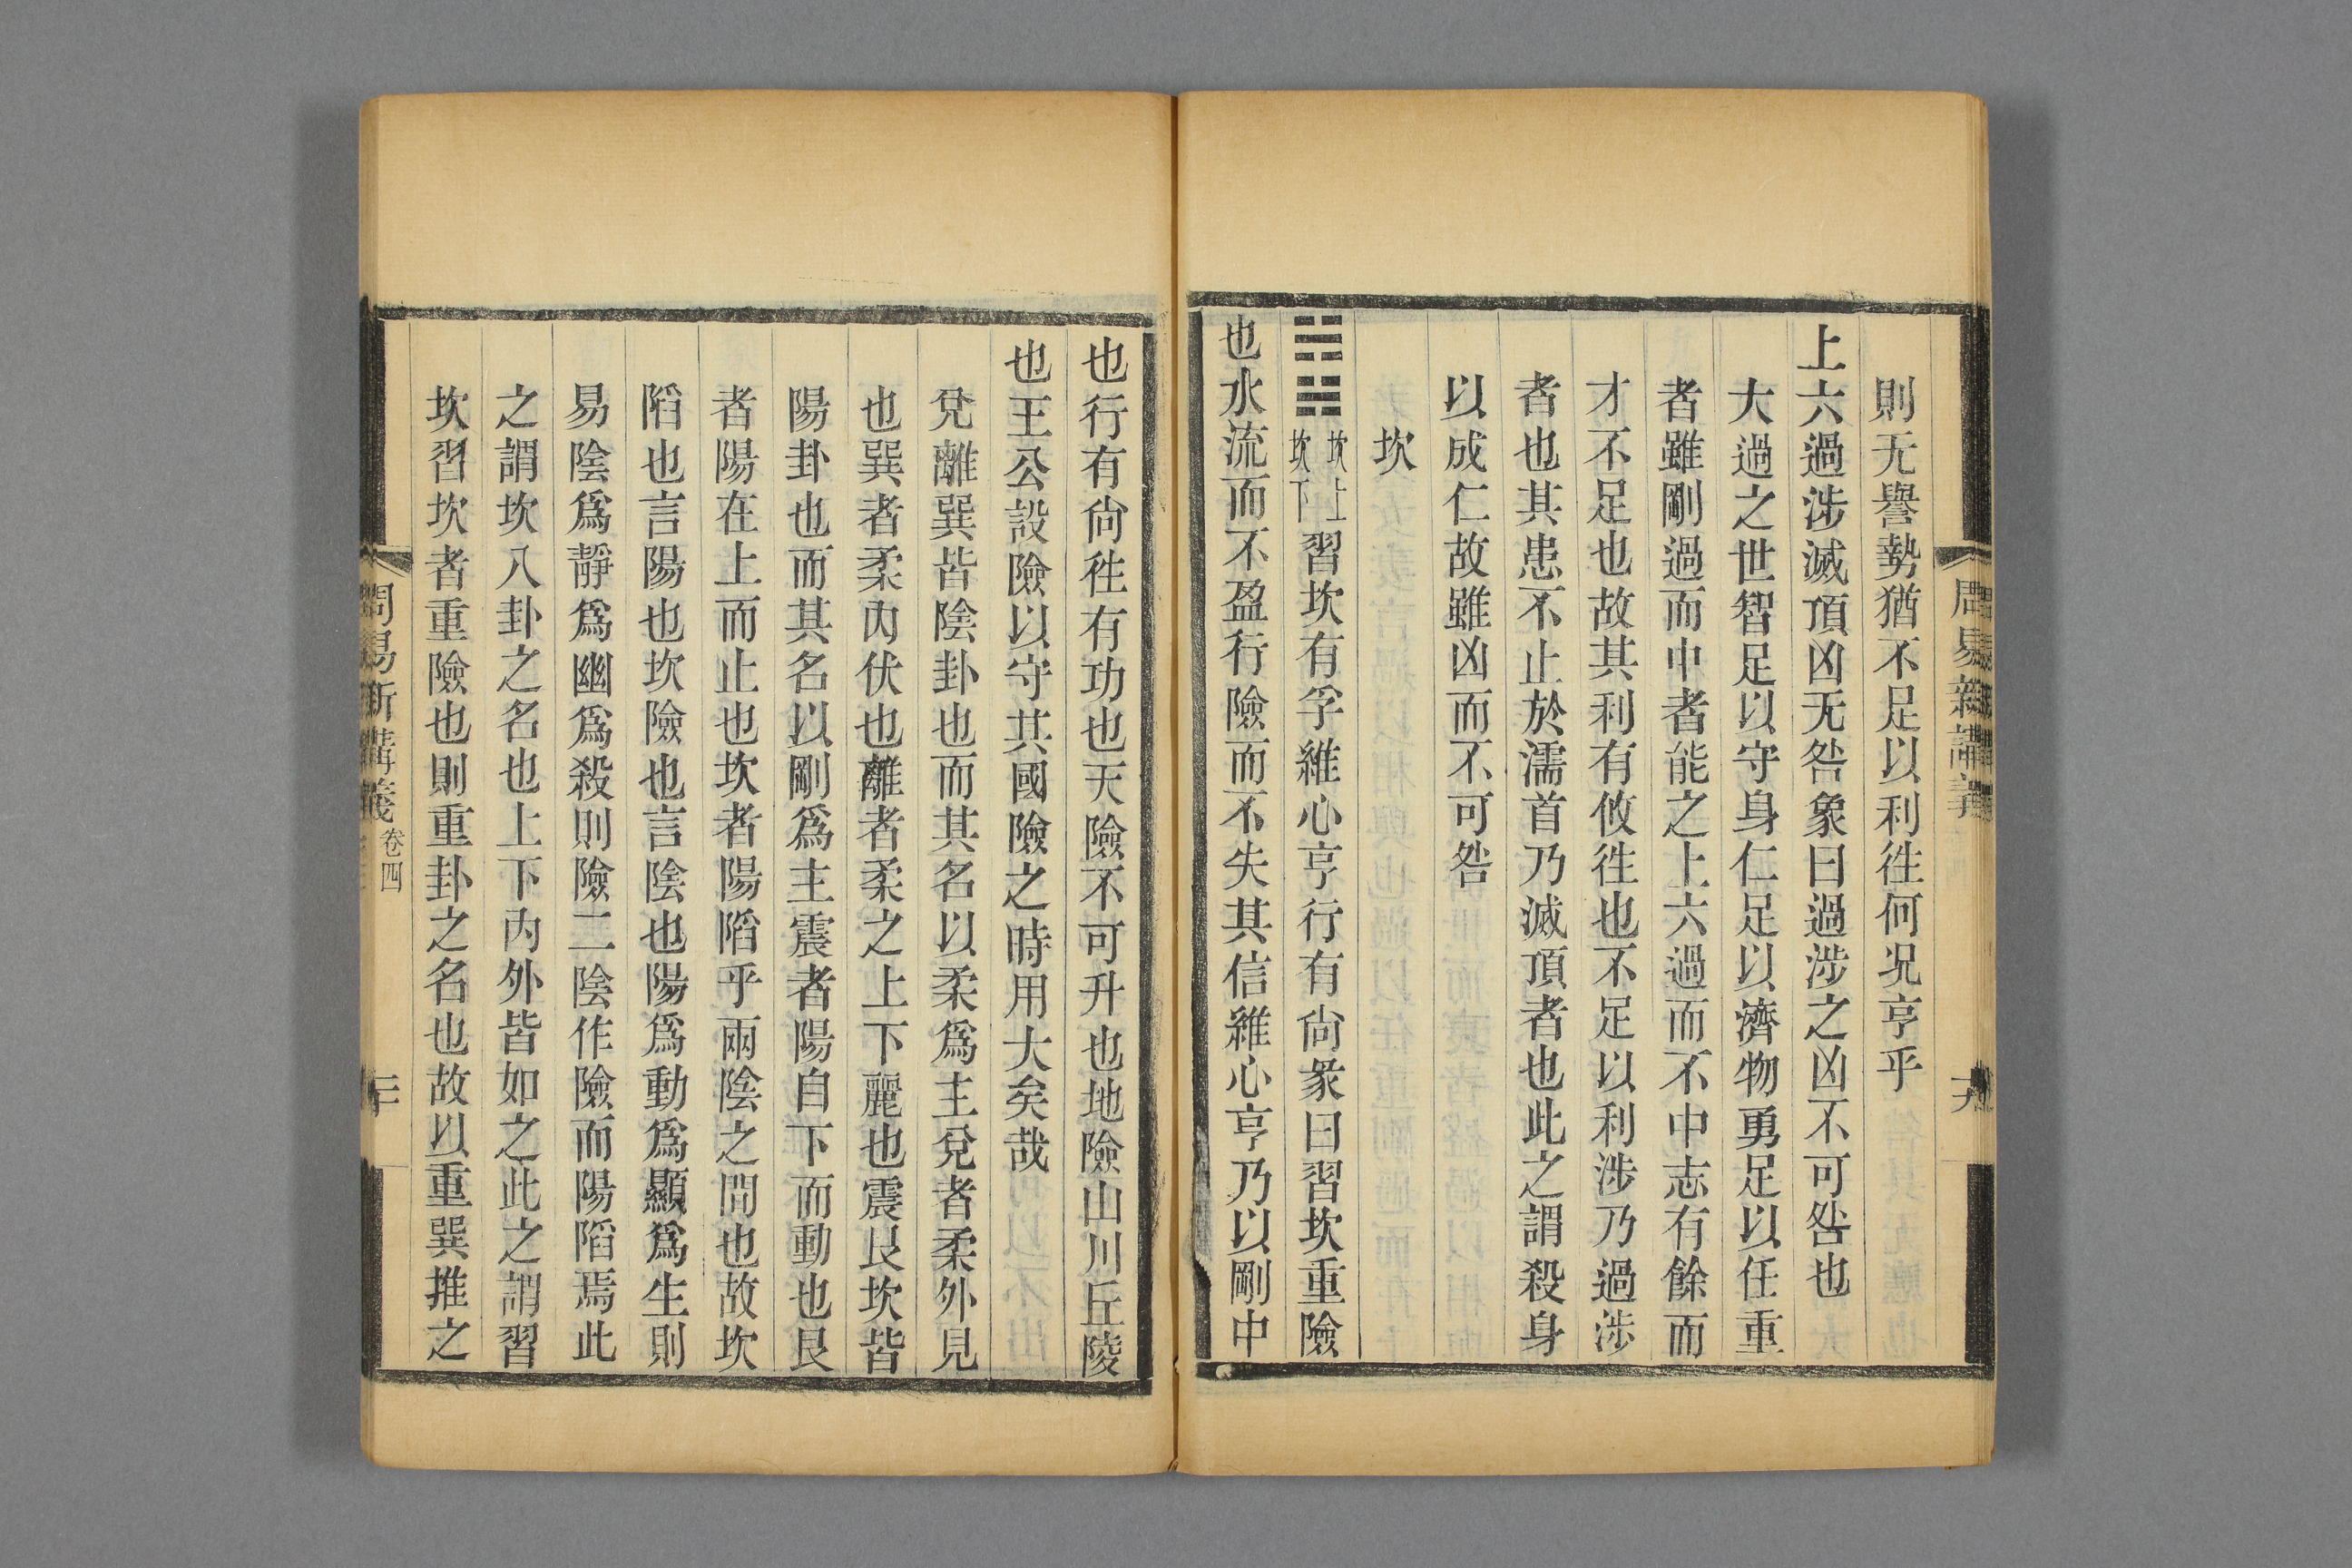 則无譽勢猶不足以利徃何况亨乎
上六過涉滅頂凶无咎象曰過涉之凶不可咎也
大過之世智足以守身仁足以濟物勇足以任重
者雖剛過而中者能之上六過而不中志有餘而
才不足也故其利有攸徃也不足以利涉乃過涉
者也其患不止於濡首乃滅頂者也此之謂殺身
以成仁故雖凶而不可咎
坎
䷜坎上坎下習坎有孚維心亨行有尙彖曰習坎重險
也水流而不盈行險而不失其信維心亨乃以剛中
也行有尙徃有功也天險不可升也地險山川丘陵
也王公設險以守其國險之時用大矣哉
兌離巽皆陰卦也而其名以柔爲主兌者柔外見
也巽者柔內伏也離者柔之上下麗也震艮坎皆
陽卦也而其名以剛爲主震者陽自下而動也艮
者陽在上而止也坎者陽陷乎兩陰之間也故坎
陷也言陽也坎險也言陰也陽爲動爲顯爲生則
易陰爲靜爲幽爲殺則險二陰作險而陽陷焉此
之謂坎八卦之名也上下內外皆如之此之謂習
坎習坎者重險也則重卦之名也故以重巽推之
周易新講義
周易新講義 卷四